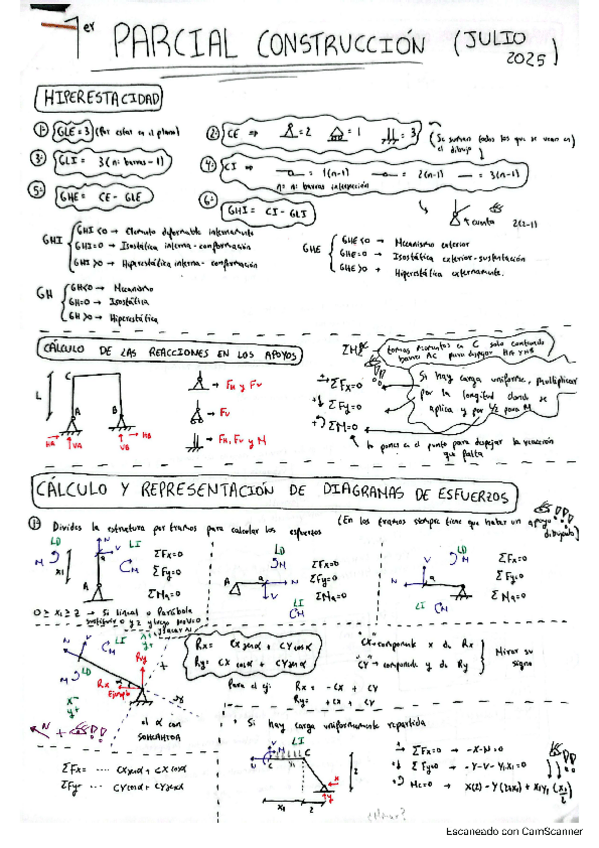 1er PARCIAL CONSTRUCCIÓN (JULIO 2025)
HIPERESTACIDAD
1º: GLE = 3 (Por estar en el plano)
2: CE ⇒ = 2 = 1 = 3 (Se suman todos los que se vean en el dibujo)
3: GLI = 3(nº barras - 1)
4: CI ⇒ = 1(n-1) = 2(n-1) = 3(n-1)
n = nº barras intersección
5: GHE = CE - GLE
6: GHI = CI - GLI
cuenta 2(2-1)
GHI
GHI<0 → Elemento deformable internamente
GHI=0 → Isostática interna - conformación
GHI>0 → Hiperestática interna - conformación
GHE
GHE<0 → Mecanismo exterior
GHE=0 → Isostática exterior - sustentación
GHE>0 → Hiperestática externamente.
GH
GH<0 → Mecanismo
GH=0 → Isostática
GH>0 → Hiperestática
CÁLCULO DE LAS REACCIONES EN LOS APOYOS
tomas momentos en C solo contando barra AC para despejar HA y VA
L C A B
HA VA VB HB
→ FH y FV
→ FV
→ FH, FV y M
ΣFx=0
ΣFy=0
ΣM=0
Si hay carga uniforme, multiplicar por la longitud donde se aplica y por 1/2 para M
lo pones en el punto para despejar la reacción que falta
CÁLCULO Y REPRESENTACIÓN DE DIAGRAMAS DE ESFUERZOS
1º Divides la estructura por tramos para calcular los esfuerzos (En los tramos siempre tiene que haber un apoyo dibujado)
LD N V LI M x1 a A
ΣFx=0
ΣFy=0
ΣMa=0
0 ≥ x1 ≥ 2 → Si lineal o Parábola
LD M N A a V LI
ΣFx=0
ΣFy=0
ΣMa=0
V LD M N a LI
ΣFx=0
ΣFy=0
ΣMa=0
N V LI M LD Ry Rx Ejemplo α
Rx = CX sinα + CY cosα
Ry = CX cosα + CY sinα
"CX" → componente x de Rx
"CY" → componente y de Ry
Mirar su signo
Para el ej: Rx = -CX + CY
Ry = +CX + CY
el α con
ΣFx = .... CX sinα + CX cosα
ΣFy = .... CY cosα + CY sinα
Si hay carga uniformemente repartida
LI V M N C x1 2 2 x y
ΣFx=0 → -X-N=0
ΣFy=0 → -Y-V-Y1X1=0
MC=0 → X(2) - Y(2+x1) + x1y1(x1/2)
Escaneado con CamScanner